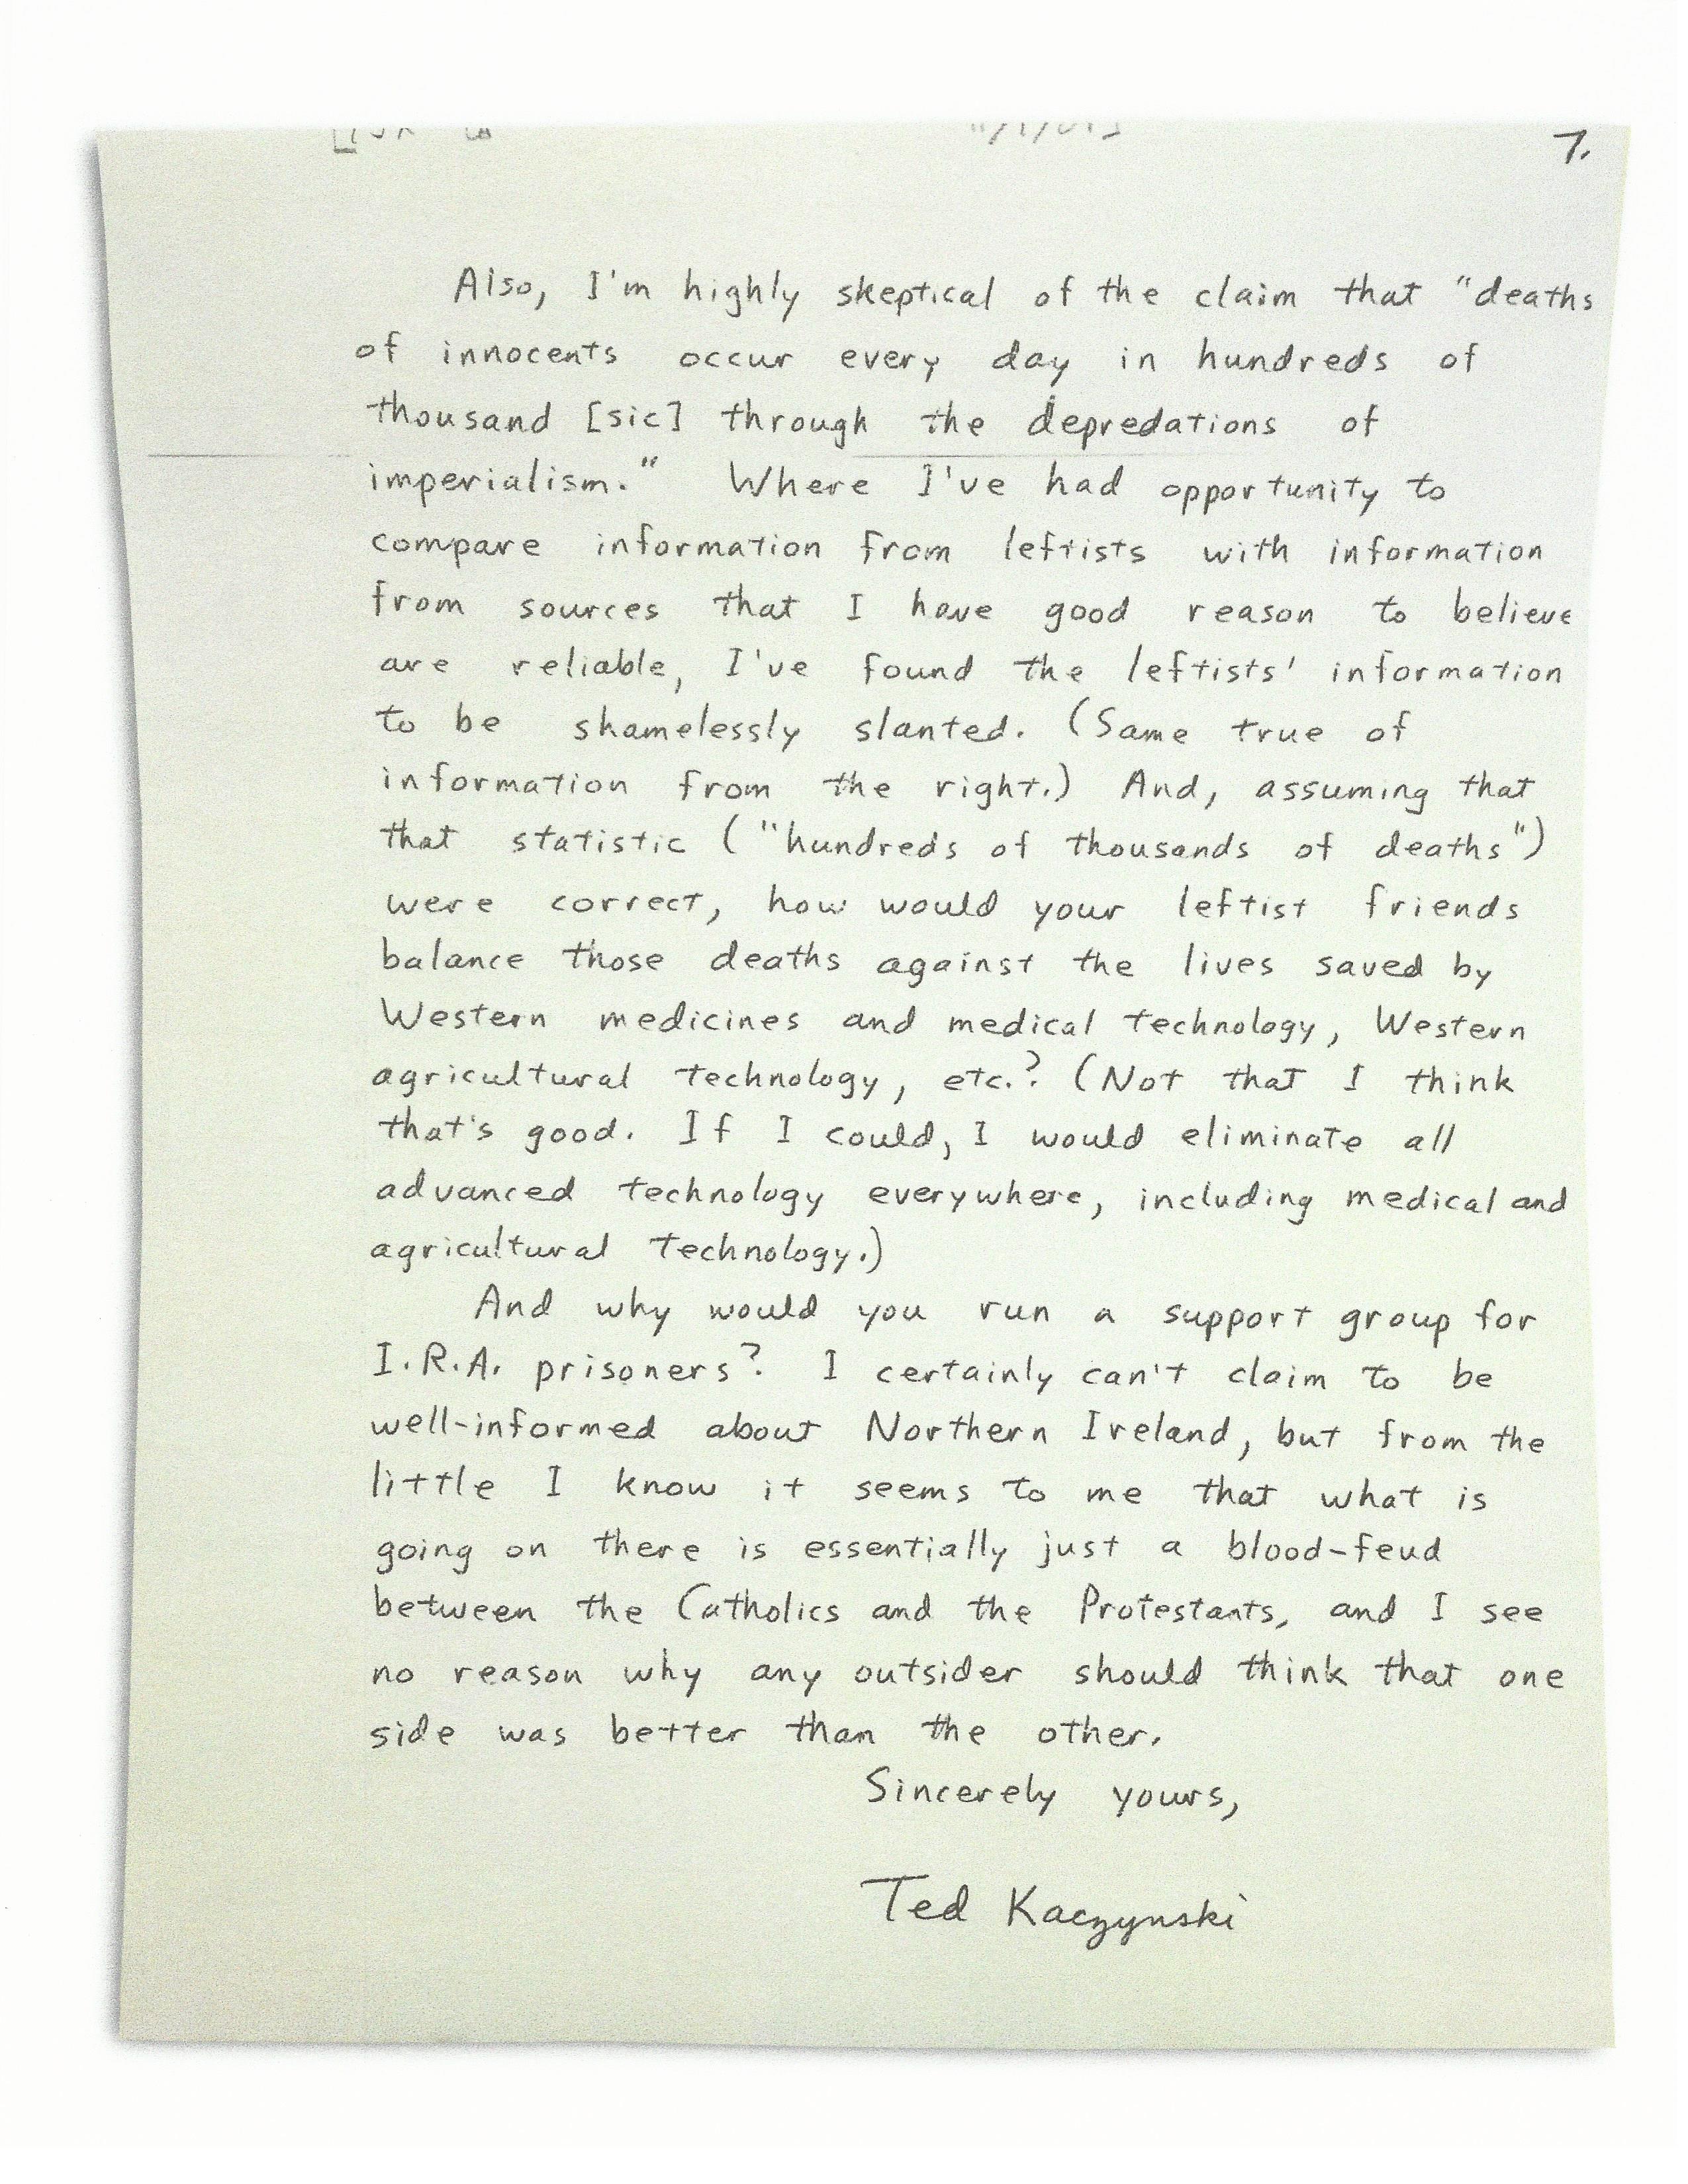 7.
Also, I'm highly skeptical of the claim that "deaths
of innocents occur every day in hundreds of
thousand [sic] through the depredations of
imperialism." Where I've had opportunity to
compare information from leftists with information
from sources that I have good reason to believe
are reliable, I've found the leftists' information
to be shamelessly slanted. (Same true of
information from the right.) And, assuming that
that statistic ("hundreds of thousands of deaths")
were correct, how would your leftist friends
balance those deaths against the lives saved by
Western medicines and medical technology, Western
agricultural technology, etc.? (Not that I think
that's good. If I could, I would eliminate all
advanced technology everywhere, including medical and
agricultural technology.)
And why would you run a support group for
I.R.A. prisoners? I certainly can't claim to be
well-informed about Northern Ireland, but from the
little I know it seems to me that what is
going on there is essentially just a blood-feud
between the Catholics and the Protestants, and I see
no reason why any outsider should think that one
side was better than the other.
Sincerely yours,
Ted Kaczynski